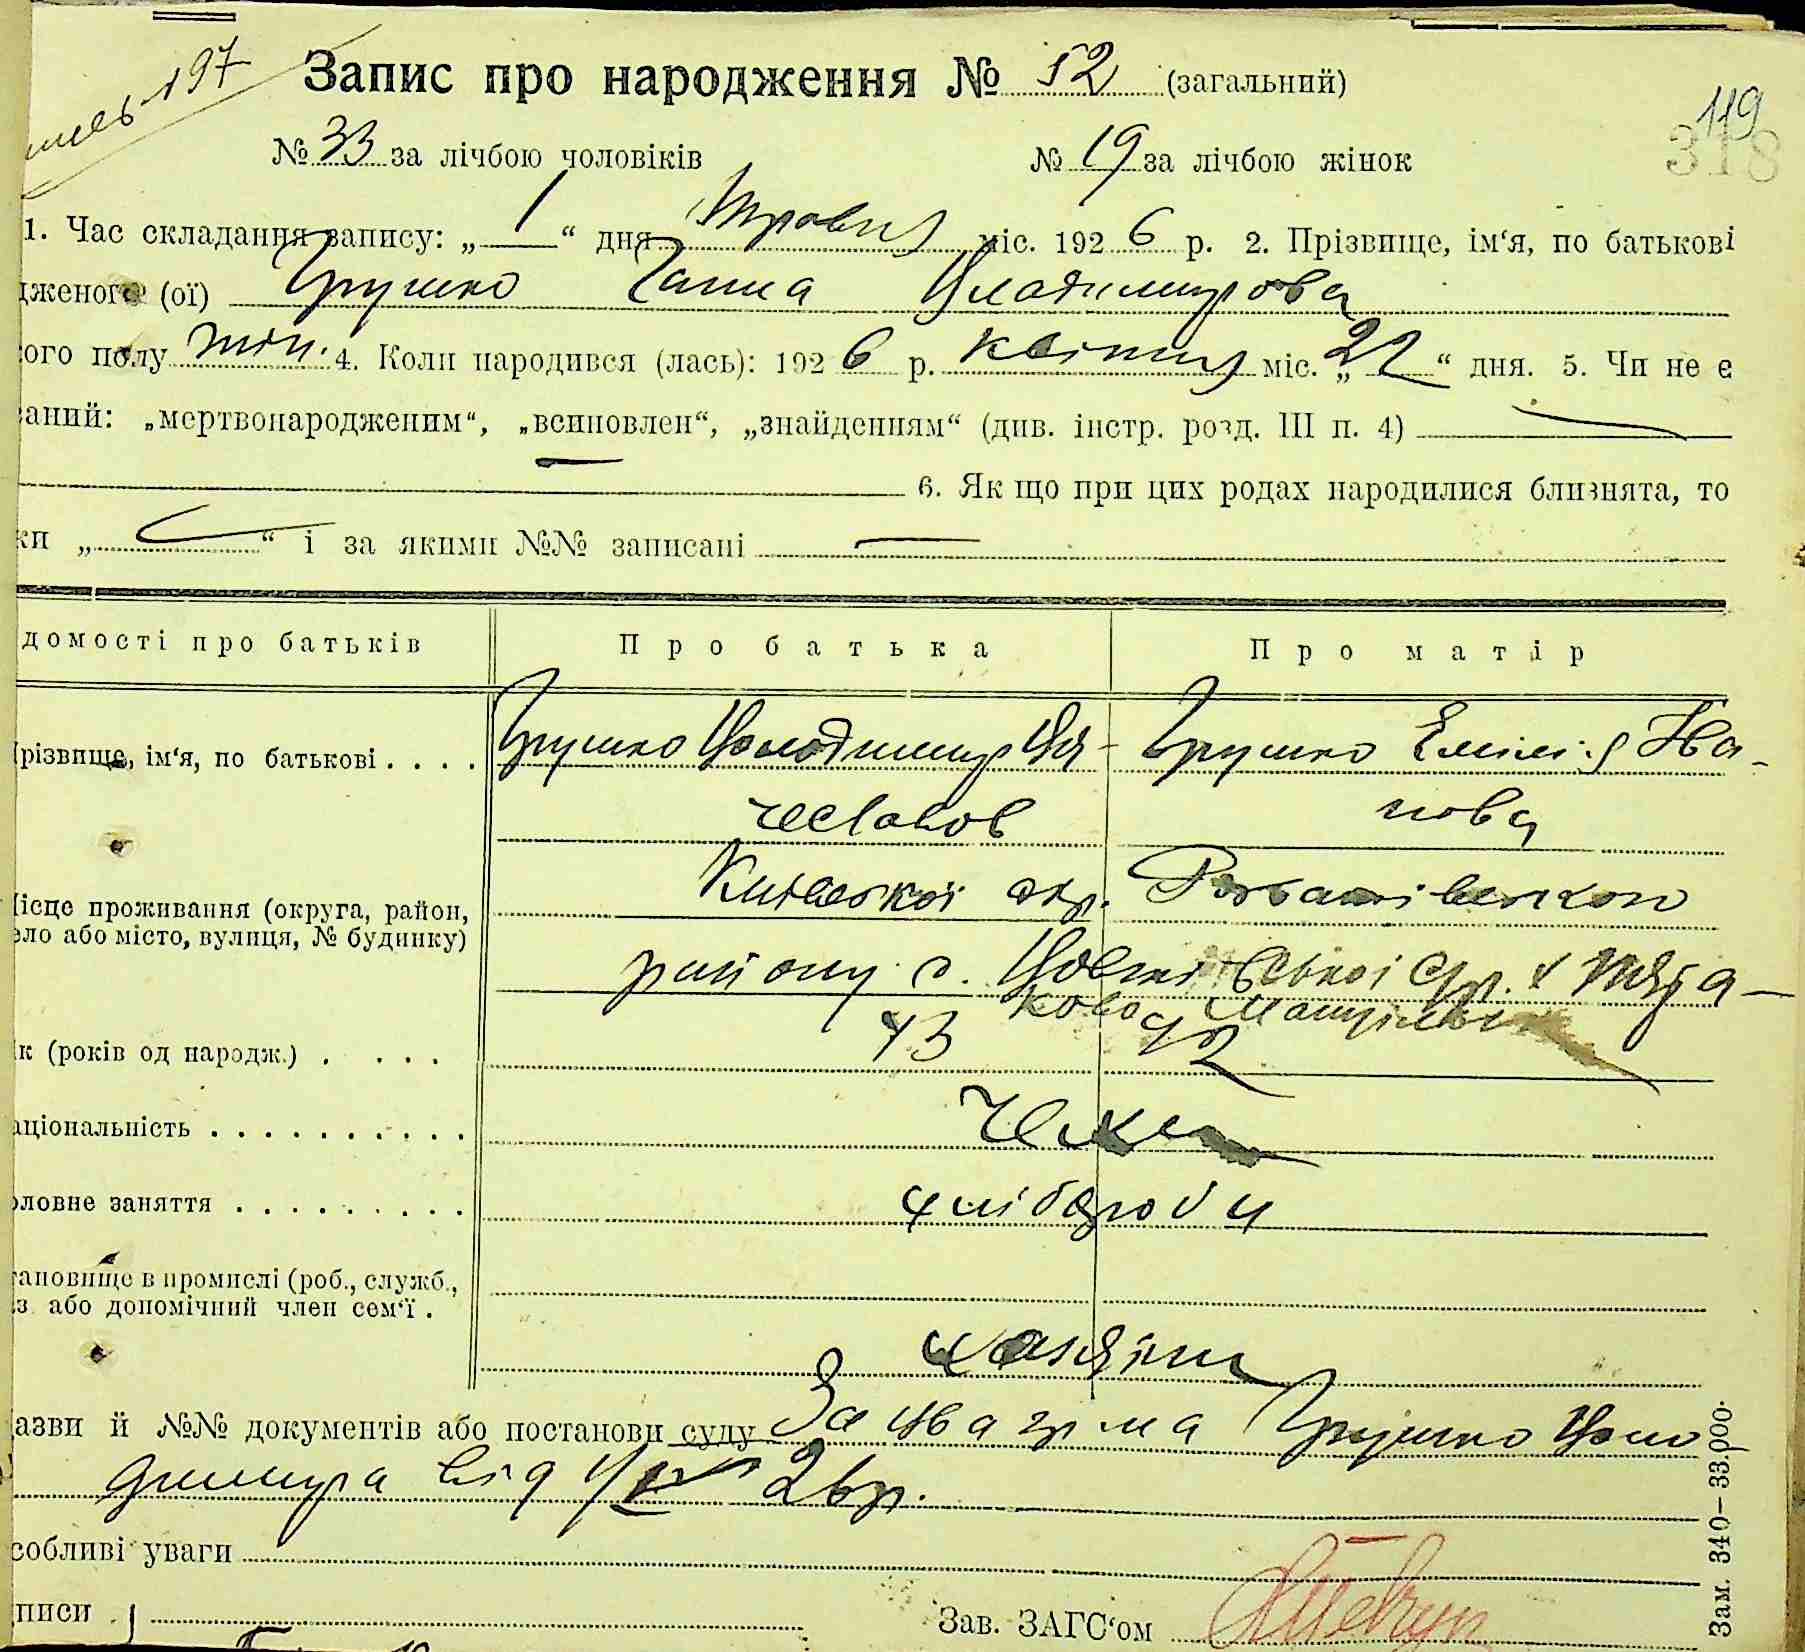 197
Запис про народження № 52 (загальний)
119
318
№ 33 за лічбою чоловіків № 19 за лічбою жінок
1. Час складання запису: „ 1 “ дня Травня міс. 192 6 р. 2. Прізвище, ім‘я, по батькові
дженого (ої) Грушко Ганна Владимирова
ого полу жін. 4. Коли народився (лась): 192 6 р. квітня міс. „ 22 “ дня. 5. Чи не є
аний: „мертвонародженим“, „всиновлен“, „знайденням“ (див. інстр. розд. III п. 4)
6. Як що при цих родах народилися близнята, то
ки „ “ і за якими №№ записані
домості про батьків Про батька Про матір
різвище, ім‘я, по батькові . . . . Грушко Володимир Вя- Грушко Емілія Іва-
чеславов нова
ісце проживання (округа, район, Київської окр.
ело або місто, вулиця, № будинку)
району с.
ік (років од народж.) . . . . 43 42
аціональність . . . . . . . . . . Чехи
оловне заняття . . . . . . . . . хлібороби
тановище в промислі (роб., служб.,
з або допомічний член сем‘ї .
хазяїни
азви й №№ документів або постанови суду Заява гр-на Грушко Воло
димира від 26 р.
собливі уваги
писи Зав. ЗАГС‘ом
Зам. 340–33.000.